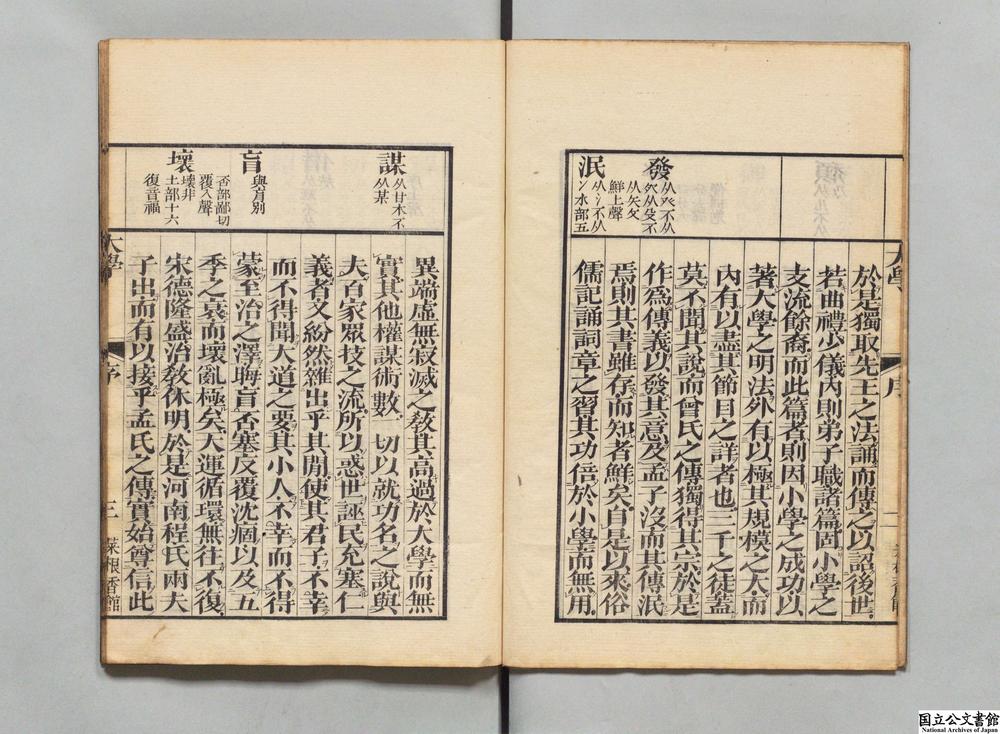 發
从癶不从
癶从殳不
从矢
鮮上聲
泯
从氵不从
冫水部五
於是獨取先王之法誦而傳之以詔後世
若曲禮少儀內則弟子職諸篇固小學之
支流餘裔而此篇者則因小學之成功以
著大學之明法外有以極其規模之大而
內有以盡其節目之詳者也三千之徒蓋
莫不聞其說而曾氏之傳獨得其宗於是
作爲傳義以發其意及孟子沒而其傳泯
焉則其書雖存而知者鮮矣自是以來俗
儒記誦詞章之習其功倍於小學而無用
謀
从甘木不
从某
盲
與肓別
否部鄙切
覆入聲
壞
壞非
土部十六
復音福
異端虛無寂滅之教其高過於大學而無
實其他權謀術數一切以就功名之說與
夫百家眾技之流所以惑世誣民充塞仁
義者又紛然雜出乎其閒使其君子不幸
而不得聞大道之要其小人不幸而不得
蒙至治之澤晦盲否塞反覆沈痼以及五
季之衰而壞亂極矣天運循環無往不復
宋德隆盛治教休明於是河南程氏兩夫
子出而有以接乎孟氏之傳實始尊信此
大學
序
三
菜根香館
国立公文書館
National Archives of Japan